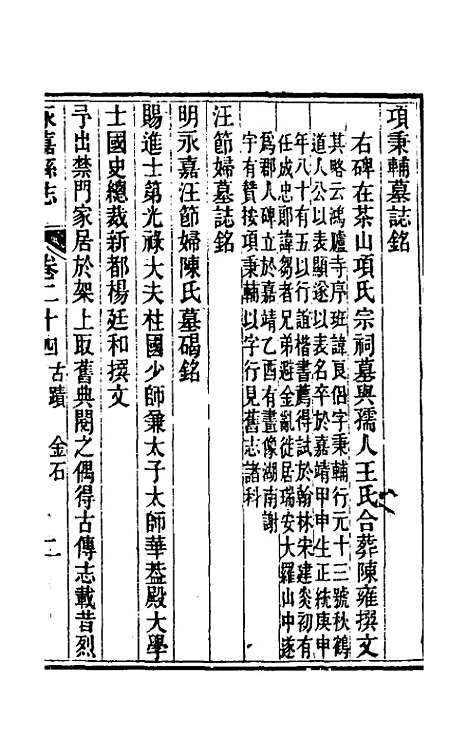 項秉輔墓誌銘
右碑在茶山項氏宗祠墓與孺人王氏合葬陳雍撰文
其略云鴻臚寺序班諱良侶字秉輔行元十三號秋鶴
道人公以表顯遂以表名卒於嘉靖甲申生正統庚申
年八十有五以行誼楷書薦得試於翰林宋建炎初有
任成忠郎諱芻者兄弟避金亂徙居瑞安大羅山中遂
爲郡人碑立於嘉靖乙酉有畫像湖南謝
字有贊按項秉輔以字行見舊志諸科
汪節婦墓誌銘
明永嘉汪節婦陳氏墓碣銘
賜進士第光祿大夫柱國少師兼太子太師華葢殿大學
士國史總裁新都楊廷和撰文
予出禁門家居於架上取舊典閱之偶得古傳志載昔烈
永嘉縣志
卷二十四
古蹟
金石